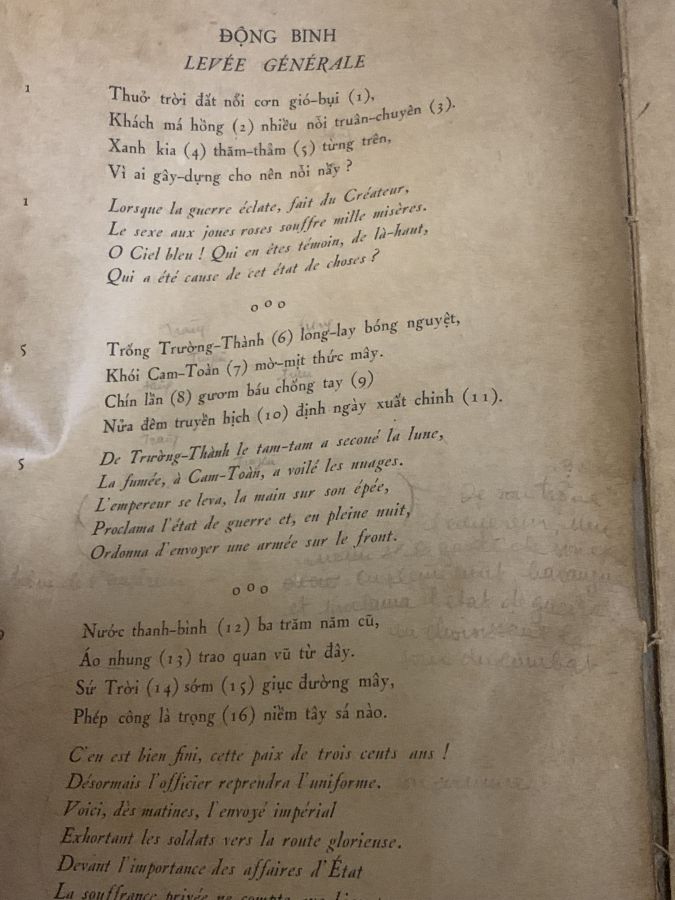 ĐỘNG BINH
LEVÉE GÉNÉRALE
1
Thuở trời đất nổi cơn gió-bụi (1),
Khách má hồng (2) nhiều nỗi truân-chuyên (3).
Xanh kia (4) thăm-thẳm (5) từng trên,
Vì ai gây-dựng cho nên nỗi nầy ?
1
Lorsque la guerre éclate, fait du Créateur,
Le sexe aux joues roses souffre mille misères.
O Ciel bleu ! Qui en êtes témoin, de là-haut,
Qui a été cause de cet état de choses ?
o o o
5
Trống Trường-Thành (6) long-lay bóng nguyệt,
Khói Cam-Toàn (7) mờ-mịt thức mây.
Chín lần (8) gươm báu chống tay (9)
Nửa đêm truyền hịch (10) định ngày xuất chinh (11).
5
De Trường-Thành le tam-tam a secoué la lune,
La fumée, à Cam-Toàn, a voilé les nuages.
L'empereur se leva, la main sur son épée,
Proclama l'état de guerre et, en pleine nuit,
Ordonna d'envoyer une armée sur le front.
o o o
Nước thanh-bình (12) ba trăm năm cũ,
Áo nhung (13) trao quan vũ từ đây.
Sứ Trời (14) sớm (15) giục đường mây,
Phép công là trọng (16) niềm tây sá nào.
C'en est bien fini, cette paix de trois cents ans !
Désormais l'officier reprendra l'uniforme.
Voici, dès matines, l'envoyé impérial
Exhortant les soldats vers la route glorieuse.
Devant l'importance des affaires d'État
La souffrance privée ne compte